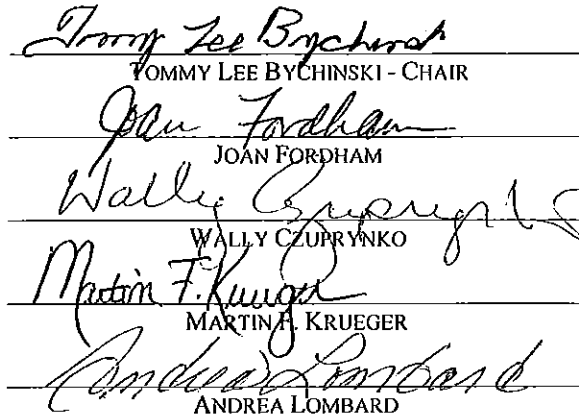 Tommy Lee Bychinski
TOMMY LEE BYCHINSKI - CHAIR
Joan Fordham
JOAN FORDHAM
Wally Czuprynko
WALLY CZUPRYNKO
Martin F. Krueger
MARTIN F. KRUEGER
Andrea Lombard
ANDREA LOMBARD